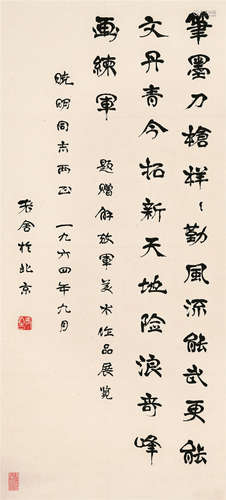 筆墨刀槍樣々勤風流能武更能
文丹青今拓新天地险浪奇峰
画練軍 题赠解放軍美术作品展览
晓明同志两正 一九六四年九月
老舍於北京